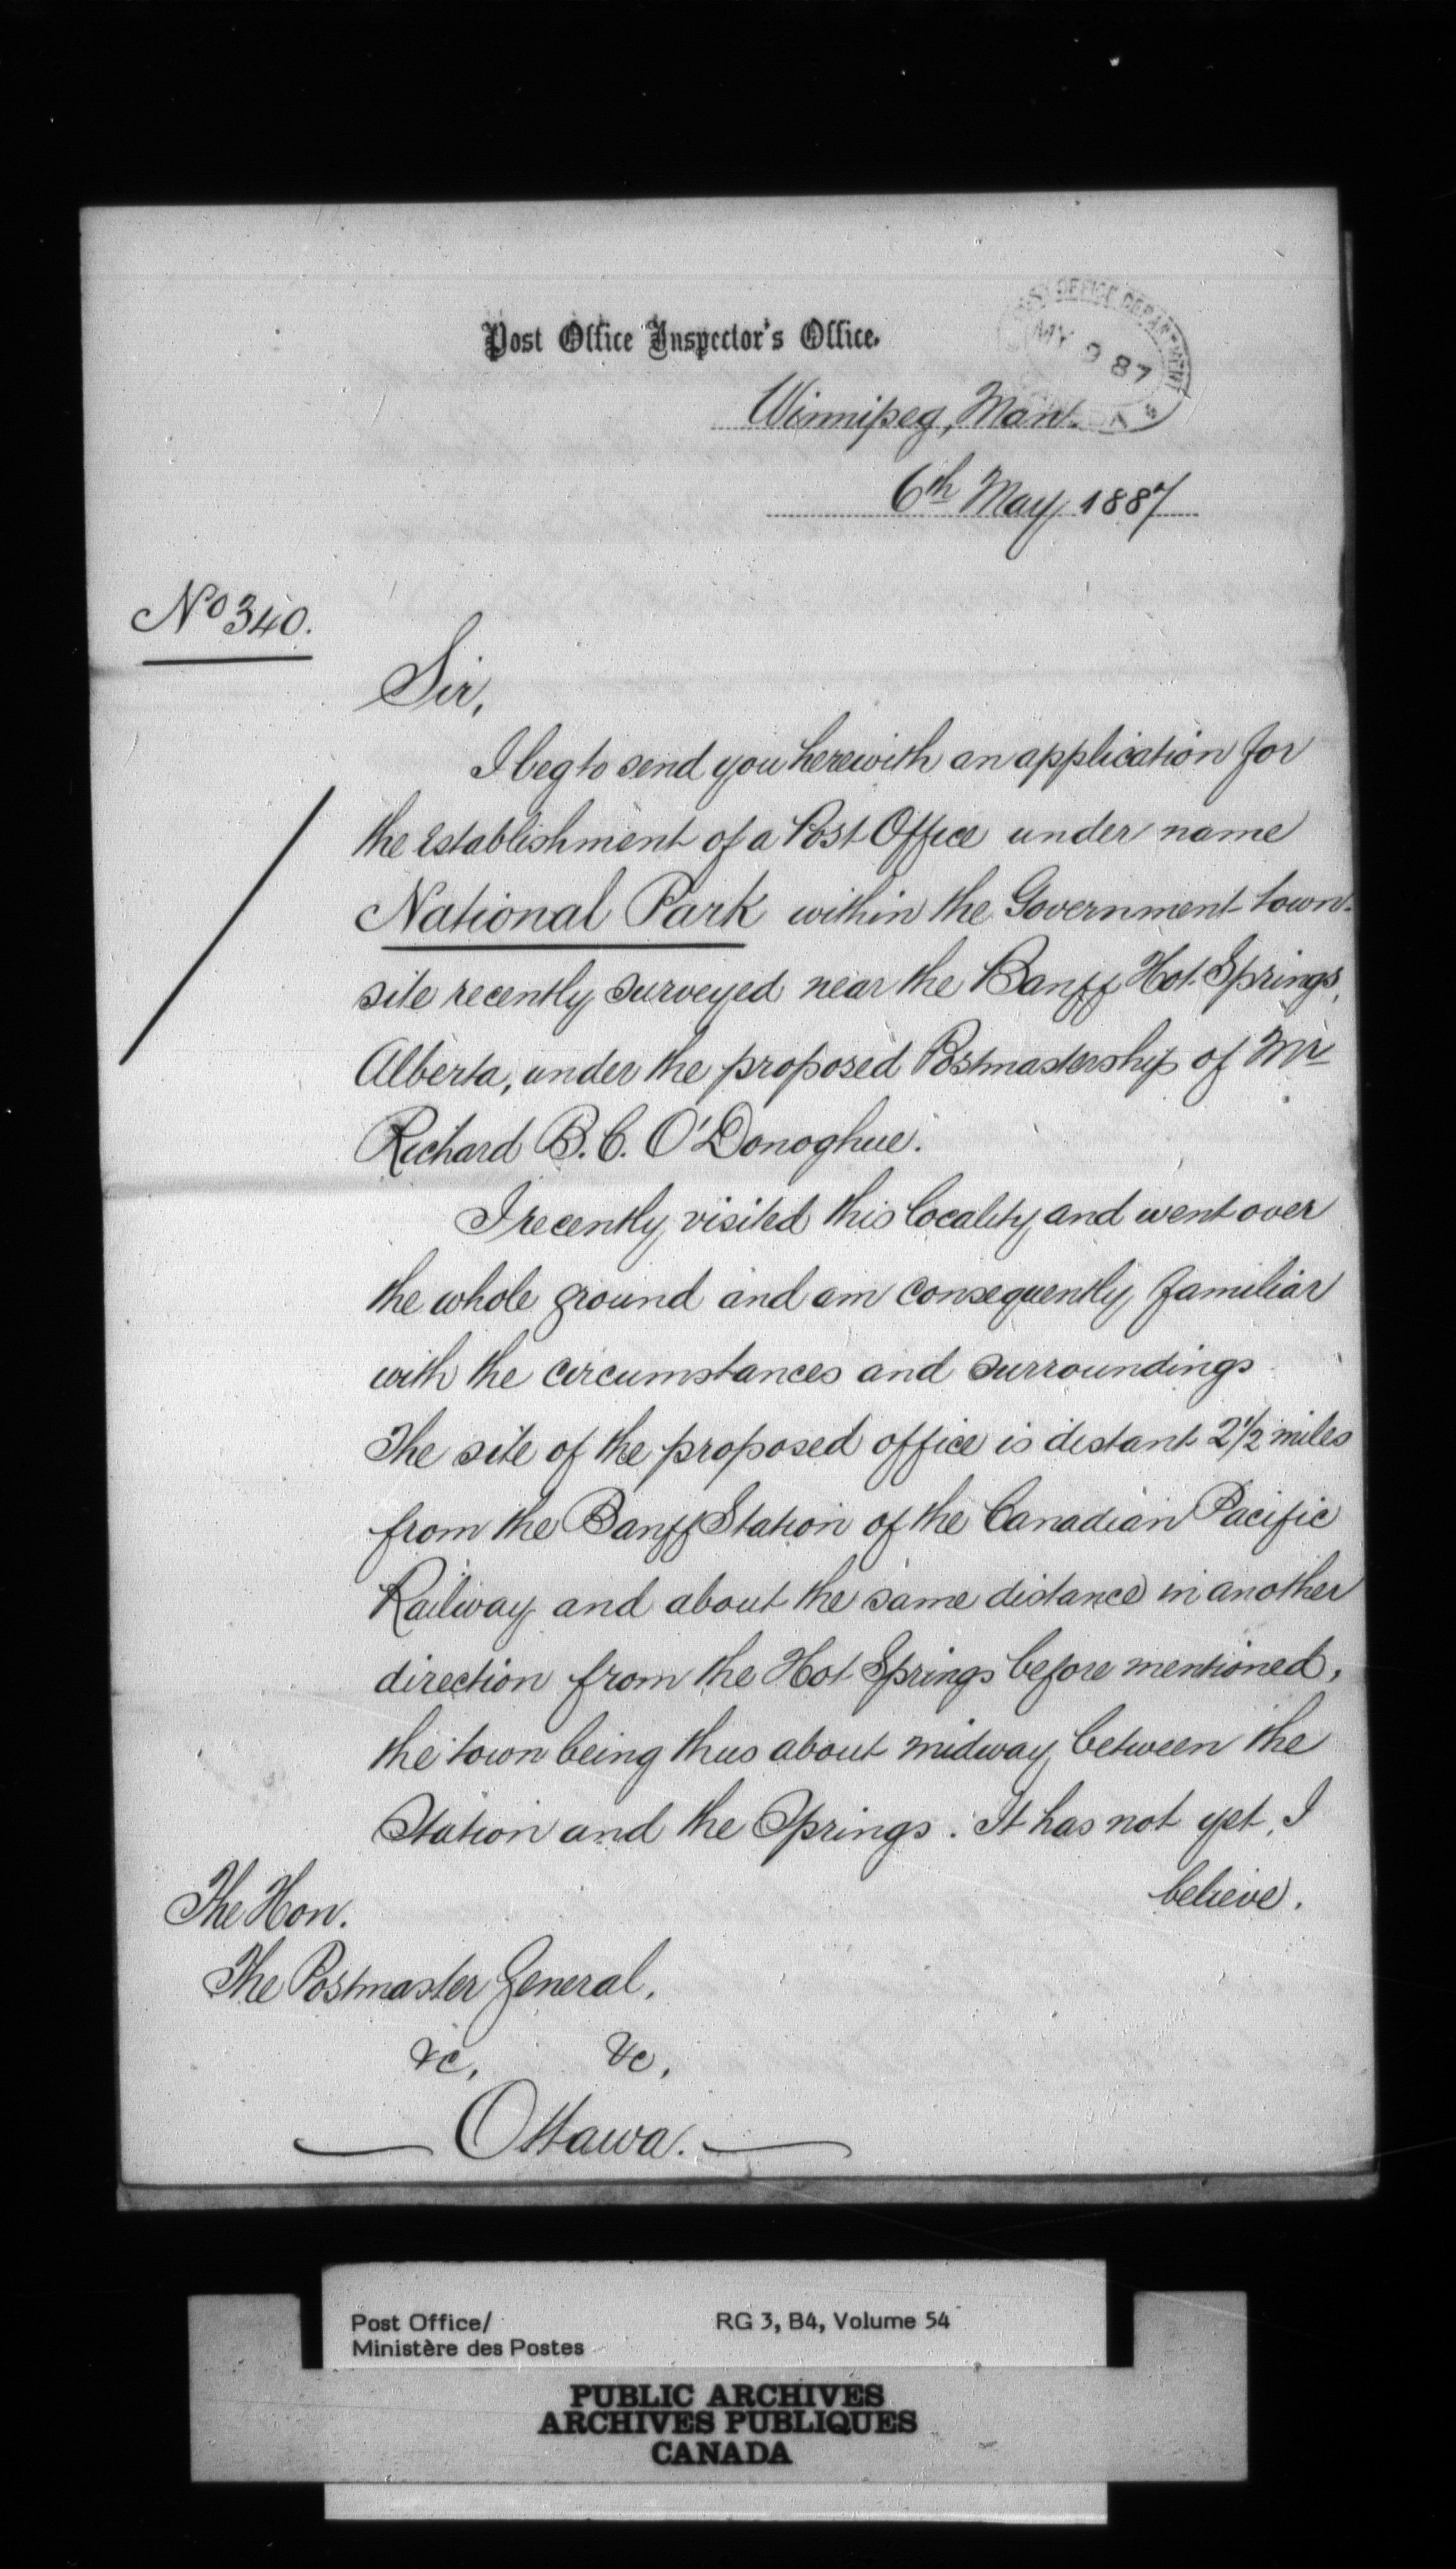 Post Office Inspector's Office.
POST OFFICE DEPARTMENT
MY 9 87
CANADA
Winnipeg, Man.
6th May 1887
No 340.
Sir,
I beg to send you herewith an application for
the establishment of a Post Office under name
National Park within the Government town-
site recently surveyed near the Banff Hot Springs,
Alberta, under the proposed Postmastership of Mr
Richard B. C. O'Donoghue.
I recently visited this locality and went over
the whole ground and am consequently familiar
with the circumstances and surroundings
The site of the proposed office is distant 2 1/2 miles
from the Banff Station of the Canadian Pacific
Railway and about the same distance in another
direction from the Hot Springs before mentioned,
the town being thus about midway between the
Station and the Springs. It has not yet, I
believe,
The Hon.
The Postmaster General,
&c, &c,
Ottawa.
Post Office/ RG 3, B4, Volume 54
Ministère des Postes
PUBLIC ARCHIVES
ARCHIVES PUBLIQUES
CANADA